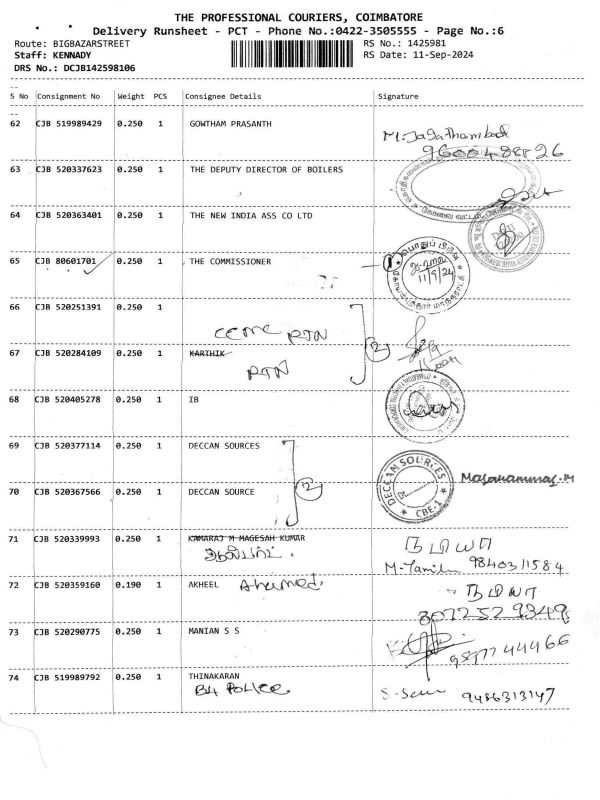 THE PROFESSIONAL COURIERS, COIMBATORE
Delivery Runsheet - PCT - Phone No.:0422-3505555 - Page No.:6
Route: BIGBAZARSTREET RS No.: 1425981
Staff: KENNADY RS Date: 11-Sep-2024
DRS No.: DCJB142598106
S No Consignment No Weight PCS Consignee Details Signature
62 CJB 519989429 0.250 1 GOWTHAM PRASANTH
63 CJB 520337623 0.250 1 THE DEPUTY DIRECTOR OF BOILERS
64 CJB 520363401 0.250 1 THE NEW INDIA ASS CO LTD
65 CJB 80601701 0.250 1 THE COMMISSIONER
11/9/24
66 CJB 520251391 0.250 1
CCMC RTN
2
67 CJB 520284109 0.250 1 KARTHIK
RTN
68 CJB 520405278 0.250 1 IB
69 CJB 520377114 0.250 1 DECCAN SOURCES
DECCAN SOURCES
CBE-1
2
70 CJB 520367566 0.250 1 DECCAN SOURCE
71 CJB 520339993 0.250 1 KAMARAJ M MAGESAH KUMAR
M-Tamil 9840311584
72 CJB 520359160 0.190 1 AKHEEL Ahamed.
8072529349
73 CJB 520290775 0.250 1 MANIAN S S
74 CJB 519989792 0.250 1 THINAKARAN
B4 Police.
9486313147